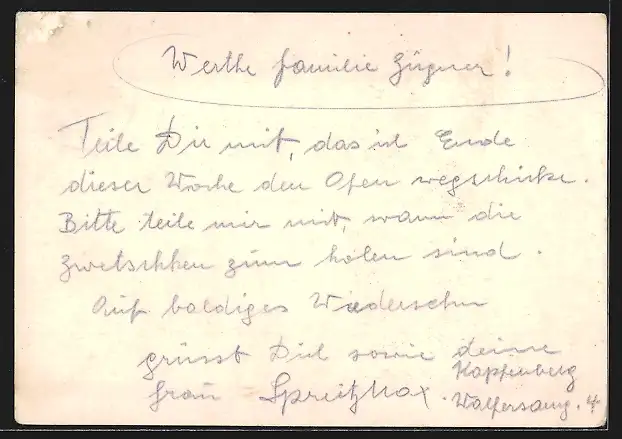 Werthe familie Zügner!
Teile Dir mit, das ich Ende
dieser Woche den Ofen wegschicke.
Bitte teile mir mit, wann die
Zwetschken zum holen sind.
Auf baldiges Wiedersehn
grüsst Dich sowie deine
frau Spreitz Max.
Kapfenberg
Walfersam. 4